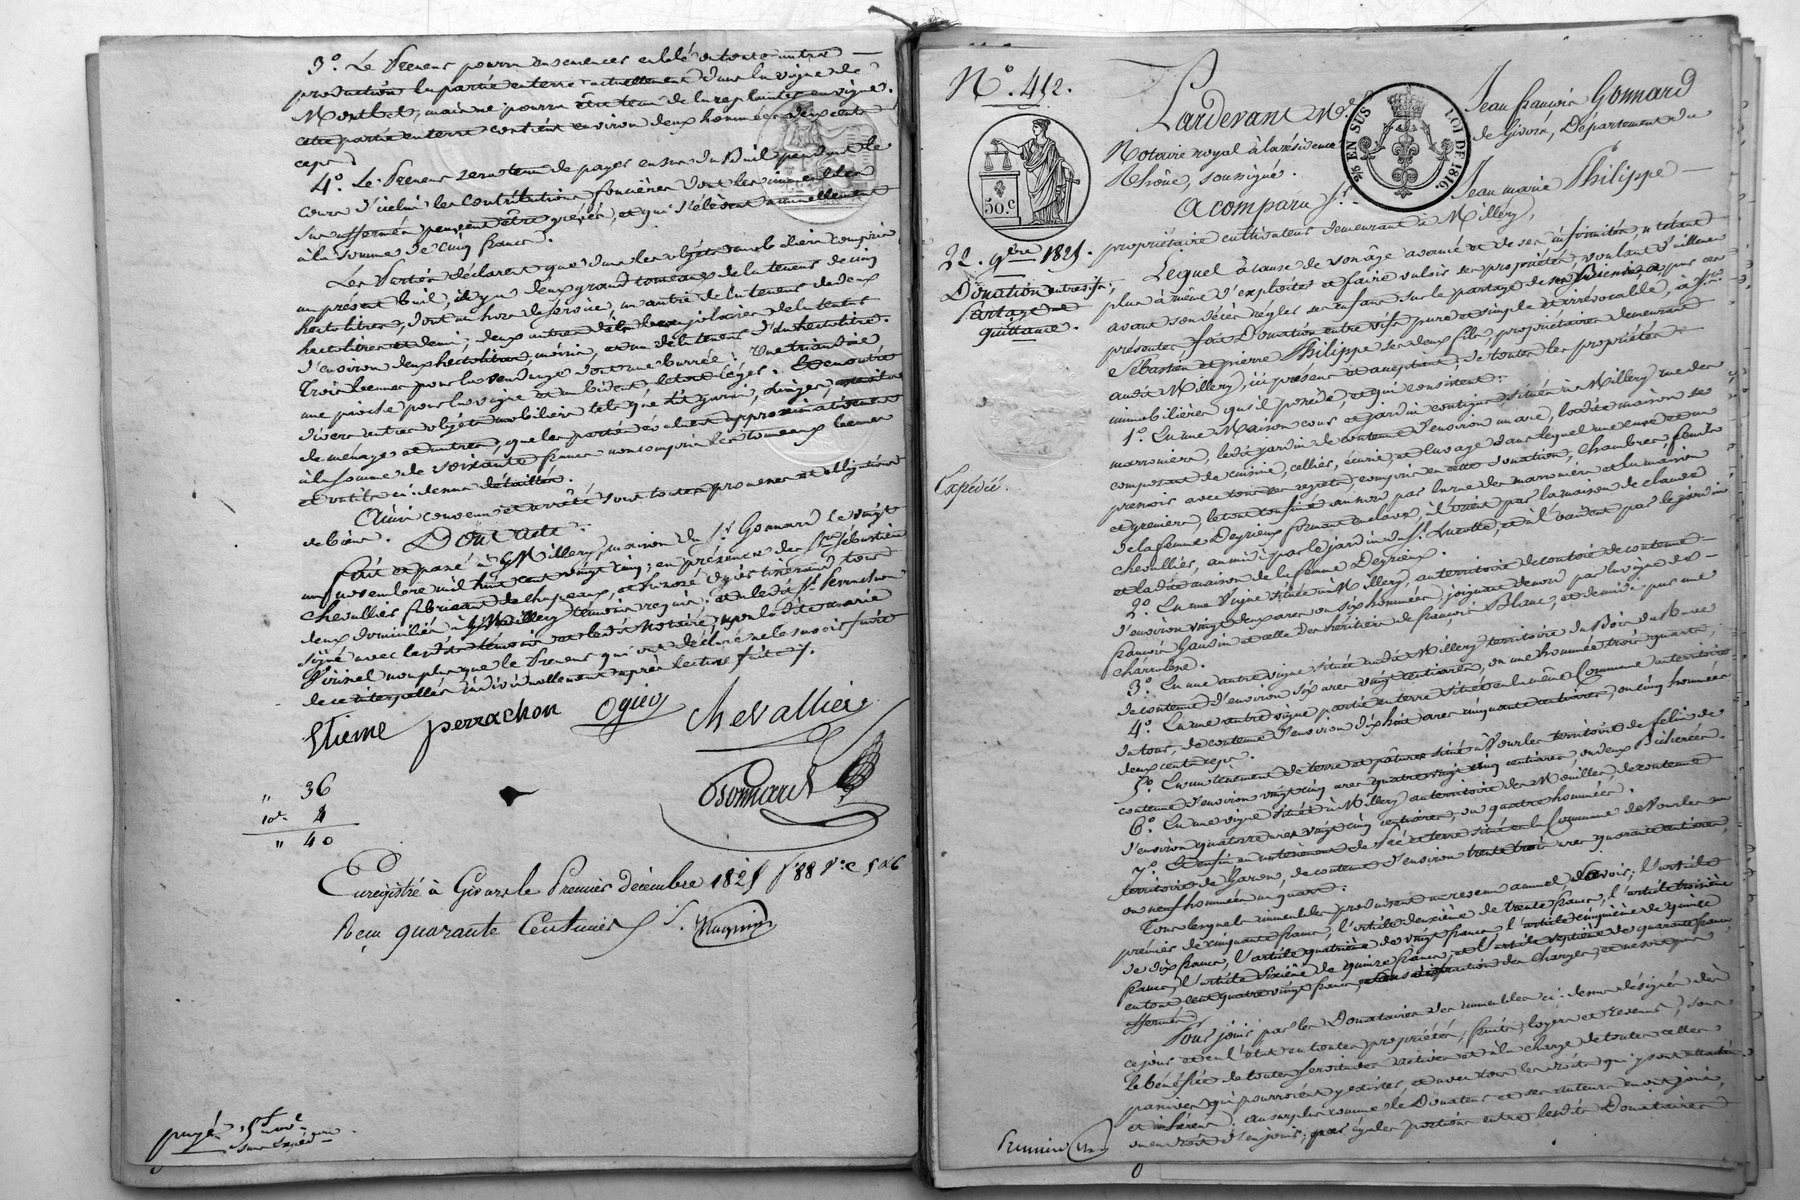 3.° Le Preneur pourra ensemencer en blé ou toute autre
production la partie en terre actuellement dans la vigne de
Montbet, mais ne pourra être tenu de la replanter en vigne.
cette partie en terre contient environ deux hommées deux cent
ceps.
4.° Le Preneur sera tenu de payer en sus du Bail pendant le
cours d'icelui les Contributions foncières dont les immeubles
sus affermés peuvent être grevés, et qui s'élèvent annuellement
à la somme de cinq francs.
Les Parties déclarent que dans les objets mobiliers compris
au présent bail, il y a deux grands tonneaux de la teneur de cinq
hectolitres, dont un hors de service, un autre de la teneur de deux
hectolitres et demi; deux autres de la teneur
d'environ deux hectolitres, et un de la teneur d'un hectolitre.
Trois bennes pour la vendange dont une
une pioche pour la vigne et un bident, le tout léger. Et en outre
divers autres objets mobiliers tels que lit garni, linges,
de ménage et autres, que les parties évaluent approximativement
à la somme de soixante francs non compris les tonneaux bennes
et outils ci-dessus détaillés.
Ainsi convenu et arrêté sous toutes promesses et obligations
de biens. Dont acte.
Fait et passé à Millery, maison du S.r Gonnard le vingt
un novembre mil huit cent vingt cinq; en présence de Sébastien
Chevallier fabricant de chapeaux, et tous
deux domiciliés à Millery témoins requis; et ledit S.r Perrachon
signé avec les témoins et ledit Notaire, non ladite marie
non plus que le Preneur qui ont déclaré ne le savoir faire
de ce interpellés individuellement après lecture faite.
Etiene perrachon Ogier Chevallier
Gonnard
" 36
10.e 4
" 40
Enregistré à Givors le Premier décembre 1825 f° 88 V.° C 5 et 6
Reçu quarante Centimes
payé
N.° 412.
Pardevant M.e Jean françois Gonnard
Notaire royal à la résidence de Givors, Département du
Rhône, soussigné.
A comparu S.r Jean marie Philippe
propriétaire cultivateur demeurant à Millery,
50.c
5/6 EN SUS LOI DE 1816.
22. 9bre 1825.
Donation entre vifs,
Partage et
quittance.
Expédié.
Lequel à cause de son âge avancé et de ses infirmités n'étant
plus à même d'exploiter et faire valoir ses propriétés, voulant d'ailleurs
avant son décès régler ses enfans sur le partage de ses biens, a par ces
présentes fait Donation entre vifs pure et simple et irrévocable, à S.rs
Sébastien et pierre Philippe ses deux fils, propriétaires demeurant
audit Millery, ici présens et acceptant, de toutes les propriétés
immobilières qu'il possède, et qui consistent:
1.° En une Maison cour et jardin contigus situés à Millery rue des
marronniers, ledit jardin de contenue d'environ un are, ladite maison se
composant de cuisine, cellier, écurie, et cuvage dans lequel une cuve et un
pressoir avec tous ses agrets, compris en cette donation, chambres, fenils
et greniers, le tout confiné au nord par la rue des marronniers et la maison
de la femme Deyrieux formant enclave, à l'orient par la maison de claude
Chevallier, au midi par le jardin du S.r Lucotte, et à l'occident par le jardin
et ladite maison de la femme Deyrieux.
2.° En une Vigne située à Millery, au territoire de contenue
d'environ vingt deux ares ou six hommées, joignant de nord par la vigne de
françois Gaudin et celle des héritiers de françois Blanc, et de midi par une
charrière.
3.° En une autre vigne située audit Millery territoire du Bois du
de contenue d'environ six ares vingt centiares, ou une hommée trois quarts;
4.° En une autre vigne partie en terre située en la même Commune au territoire
du tour, de contenue d'environ dix huit ares cinquante centiares, ou cinq hommées
deux cents ceps.
5.° En un tènement de terre et pâture situé à Vourles territoire de felin de
contenue d'environ vingt cinq ares quatre vingt cinq centiares, ou deux Bicherées.
6.° En une vigne située à Millery au territoire des Mouilles, de contenue
d'environ quatorze ares vingt cinq centiares, ou quatre hommées.
7.° Et enfin en un tènement de Pré et terre situé en la Commune de Vourles au
territoire de Garon, de contenue d'environ trente trois ares quarante centiares,
ou neuf hommées un quart.
Tous lesquels immeubles produisent un revenu annuel, savoir; l'article
premier de cinquante francs, l'article deuxième de trente francs, l'article troisième
de dix francs, l'article quatrième de vingt francs, l'article cinquième de quinze
francs, l'article sixième de quinze francs, et l'article septième de quarante francs
en tout cent quatre vingt francs, sans distraction des charges, et ne sont pas
affermés.
Pour jouir par les Donataires des immeubles ci-dessus désignés dès
ce jour et en l'état en toutes propriétés, fruits, loyers et Revenus, sous
le bénéfice de toutes servitudes actives et à la charge de toutes celles
passives qui pourroient y exister, et avec tous les droits qui y sont attachés
et inhérens; au surplus comme le Donateur et ses auteurs en ont joui,
ou eu droit d'en jouir, par égales portions entre lesdits Donataires
Premier